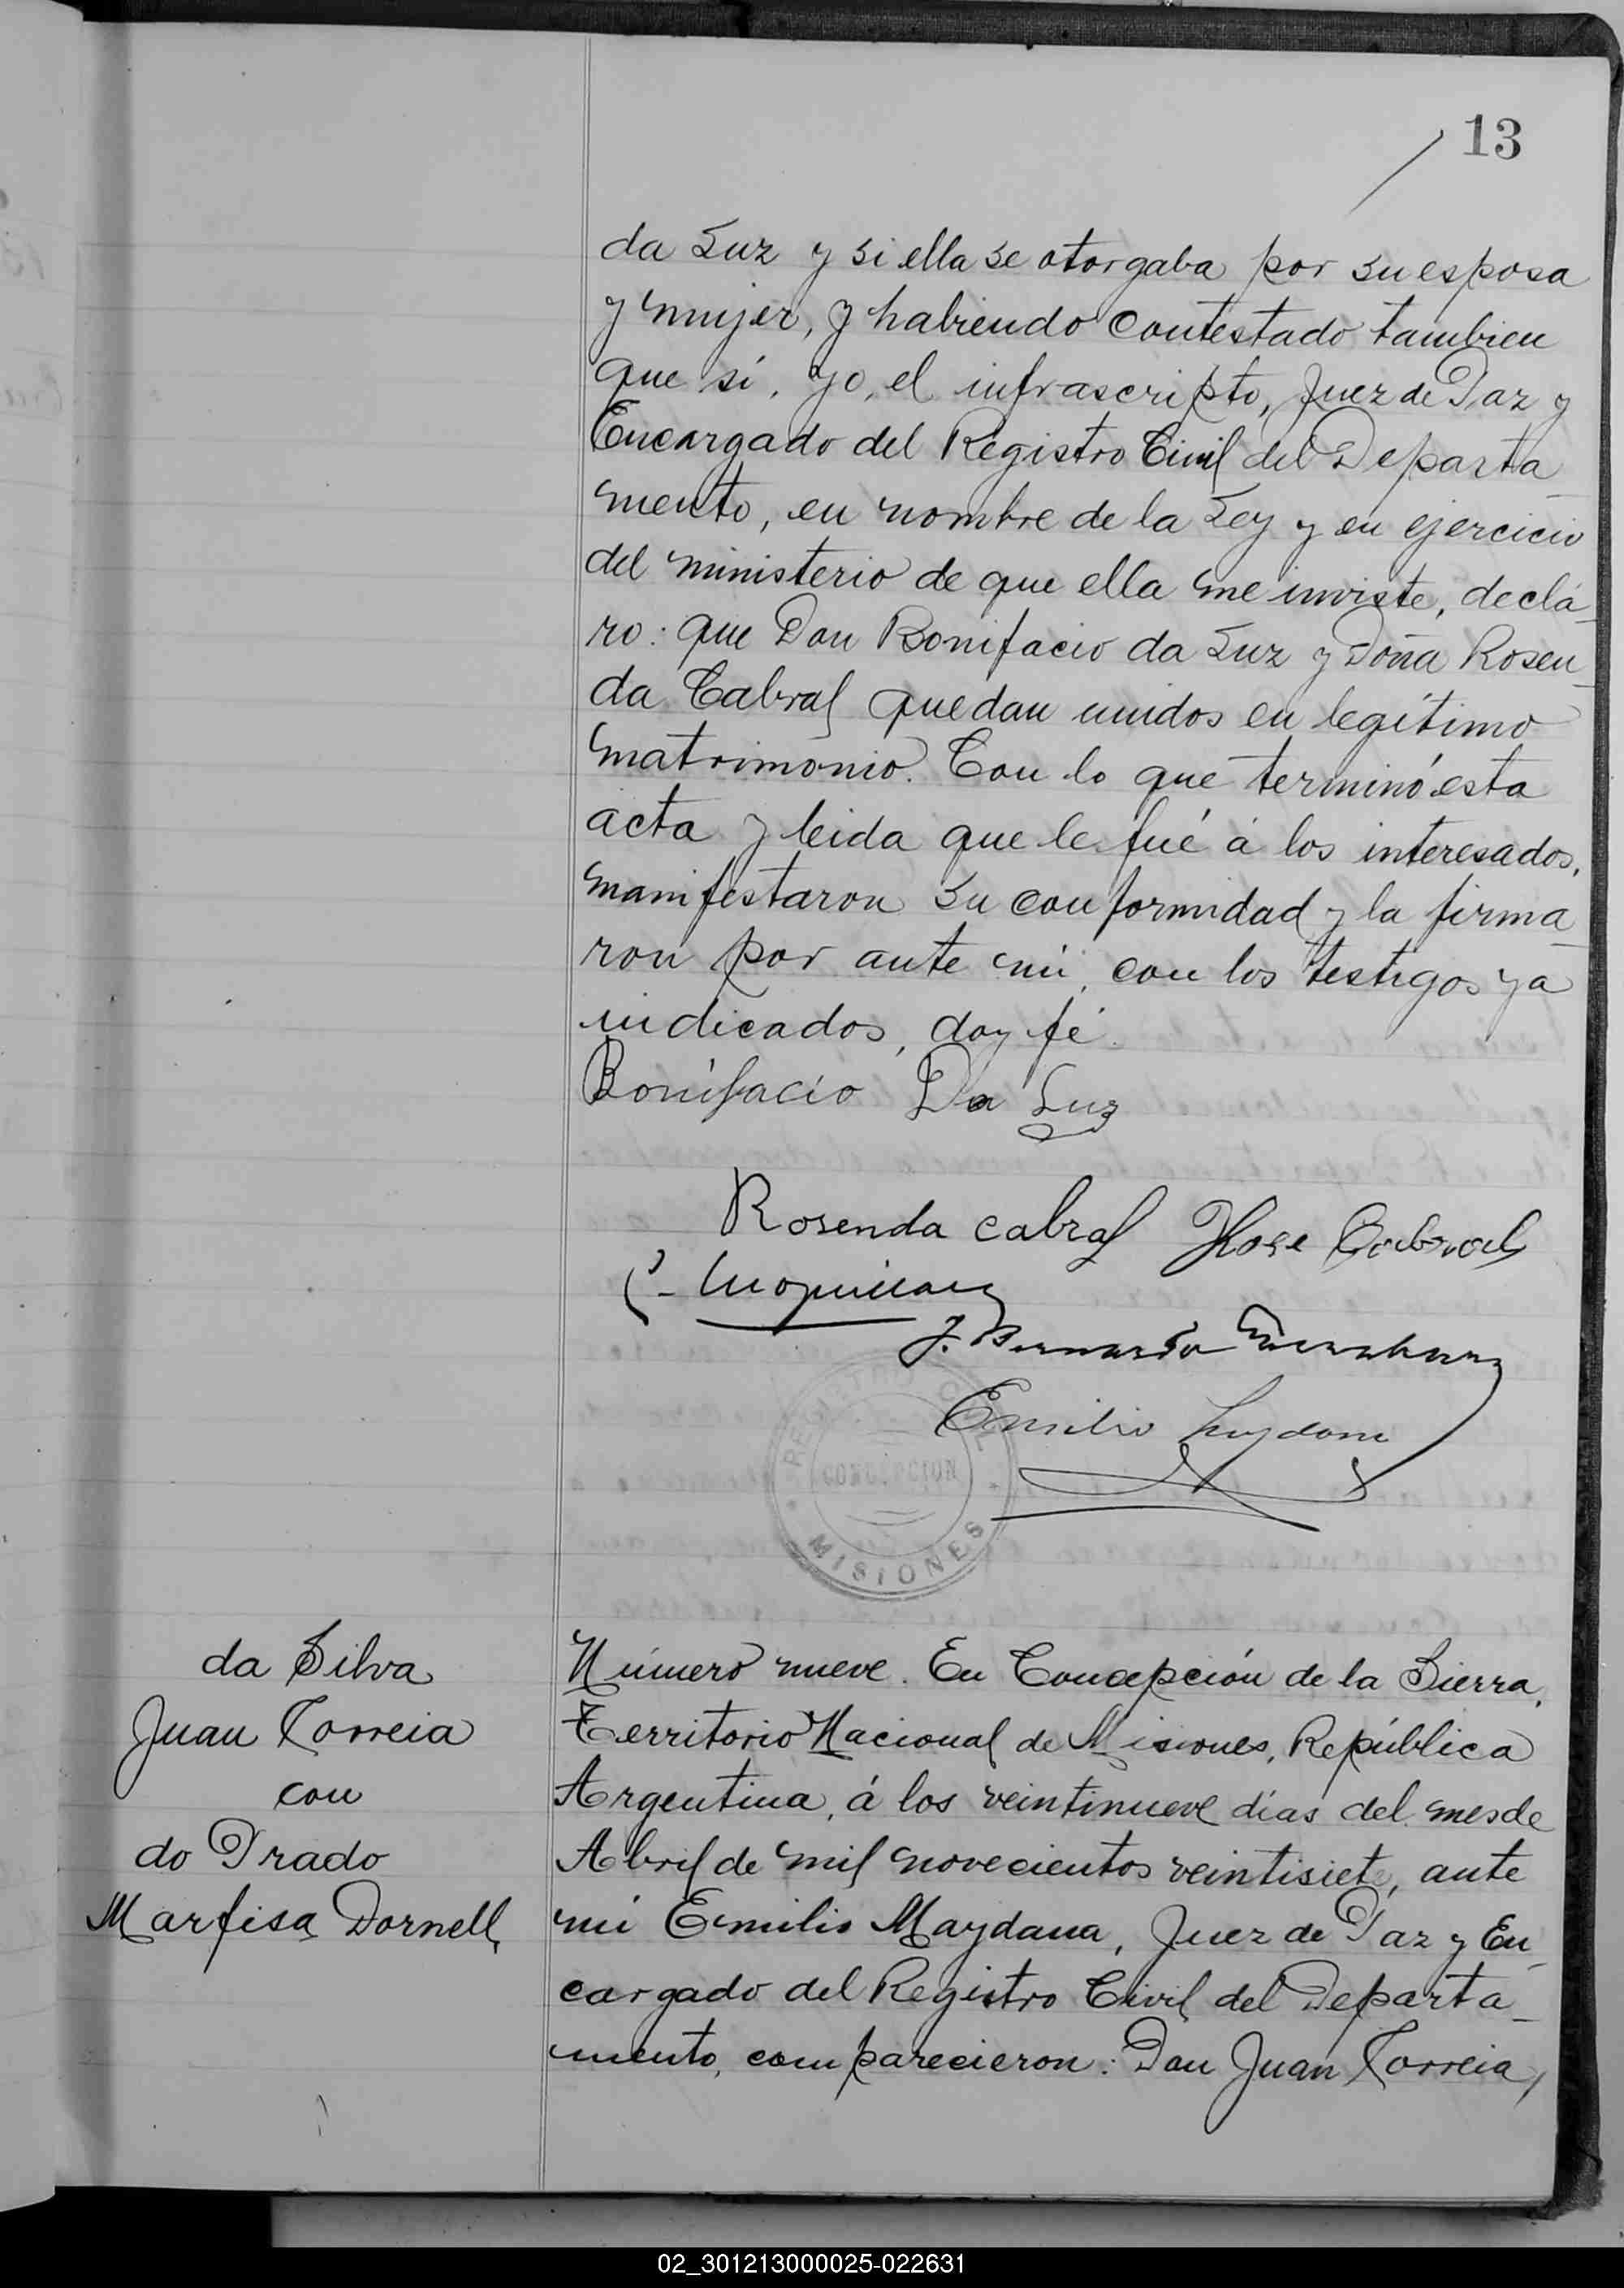 13
da Luz y si ella se otorgaba por su esposa
y mujer, y habiendo contestado tambien
que si, yo, el infrascripto, Juez de Paz y
Encargado del Registro Civil del Departa_
mento, en nombre de la Ley y en ejercicio
del ministerio de que ella me inviste, decla_
ro: que Don Bonifacio da Luz y Doña Rosen_
da Cabral quedan unidos en legítimo
matrimonio. Con lo que terminó esta
acta y leida que le fué á los interesados,
manifestaron su conformidad y la firma_
ron por ante mi, con los testigos ya
indicados, doy fé.
Bonifacio Da Luz
Rosenda Cabral Jose Cabral
J. Bernardo
Emilio Maydana
REGISTRO CIVIL
CONCEPCION
MISIONES
da Silva
Juan Correia
con
do Prado
Marfisa Dornell,
Número nueve. En Concepción de la Sierra,
Territorio Nacional de Misiones, República
Argentina, á los veintinueve días del mes de
Abril de mil novecientos veintisiete, ante
mi Emilio Maydana, Juez de Paz y En_
cargado del Registro Civil del Departa_
mento, comparecieron: Don Juan Correia,
02_301213000025-022631